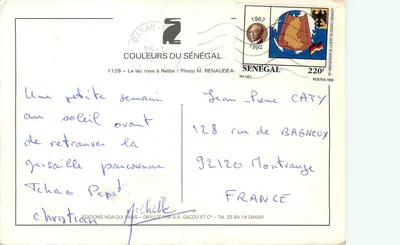 DAKAR
1967
1992
COULEURS DU SÉNÉGAL
1128 - Le lac rose à Retba / Photo M. RENAUDEA
SÉNÉGAL 220F
POSTES 1992
Une petite semaine
au soleil avant
de retrouver la
grisaille parisienne
Tchao
Christian Michelle
Jean-Pierre CATY
128 rue de BAGNEUX
92120 Montrouge
FRANCE
ÉDITIONS HOA-QUI PARIS - DIFFUSÉ PAR A.A. GACOU ET Cie - Tl. 25 84 14 DAKAR